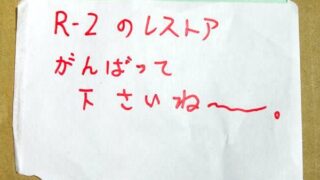 R-2のレストア
がんばって
下さいね〜。